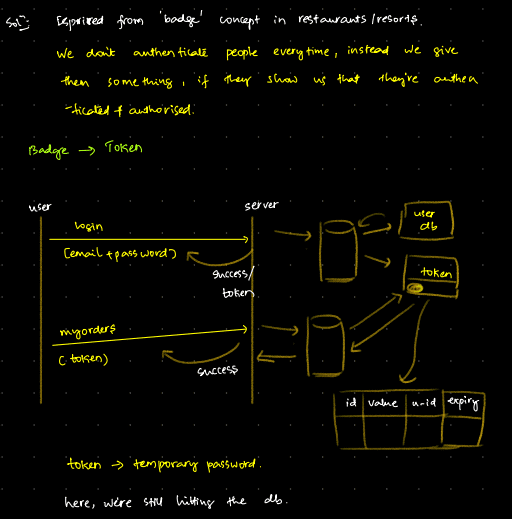 Sol: Inspired from 'badge' concept in restaurants/resorts.
We don't authenticate people everytime, instead we give
them something, if they show us that they're authen
-ticated & authorised.
Badge → Token
user
server
login
(email + password)
success/
token
user
db
token
myorders
(token)
success
id value u-id expiry
token → temporary password.
here, we're still hitting the db.